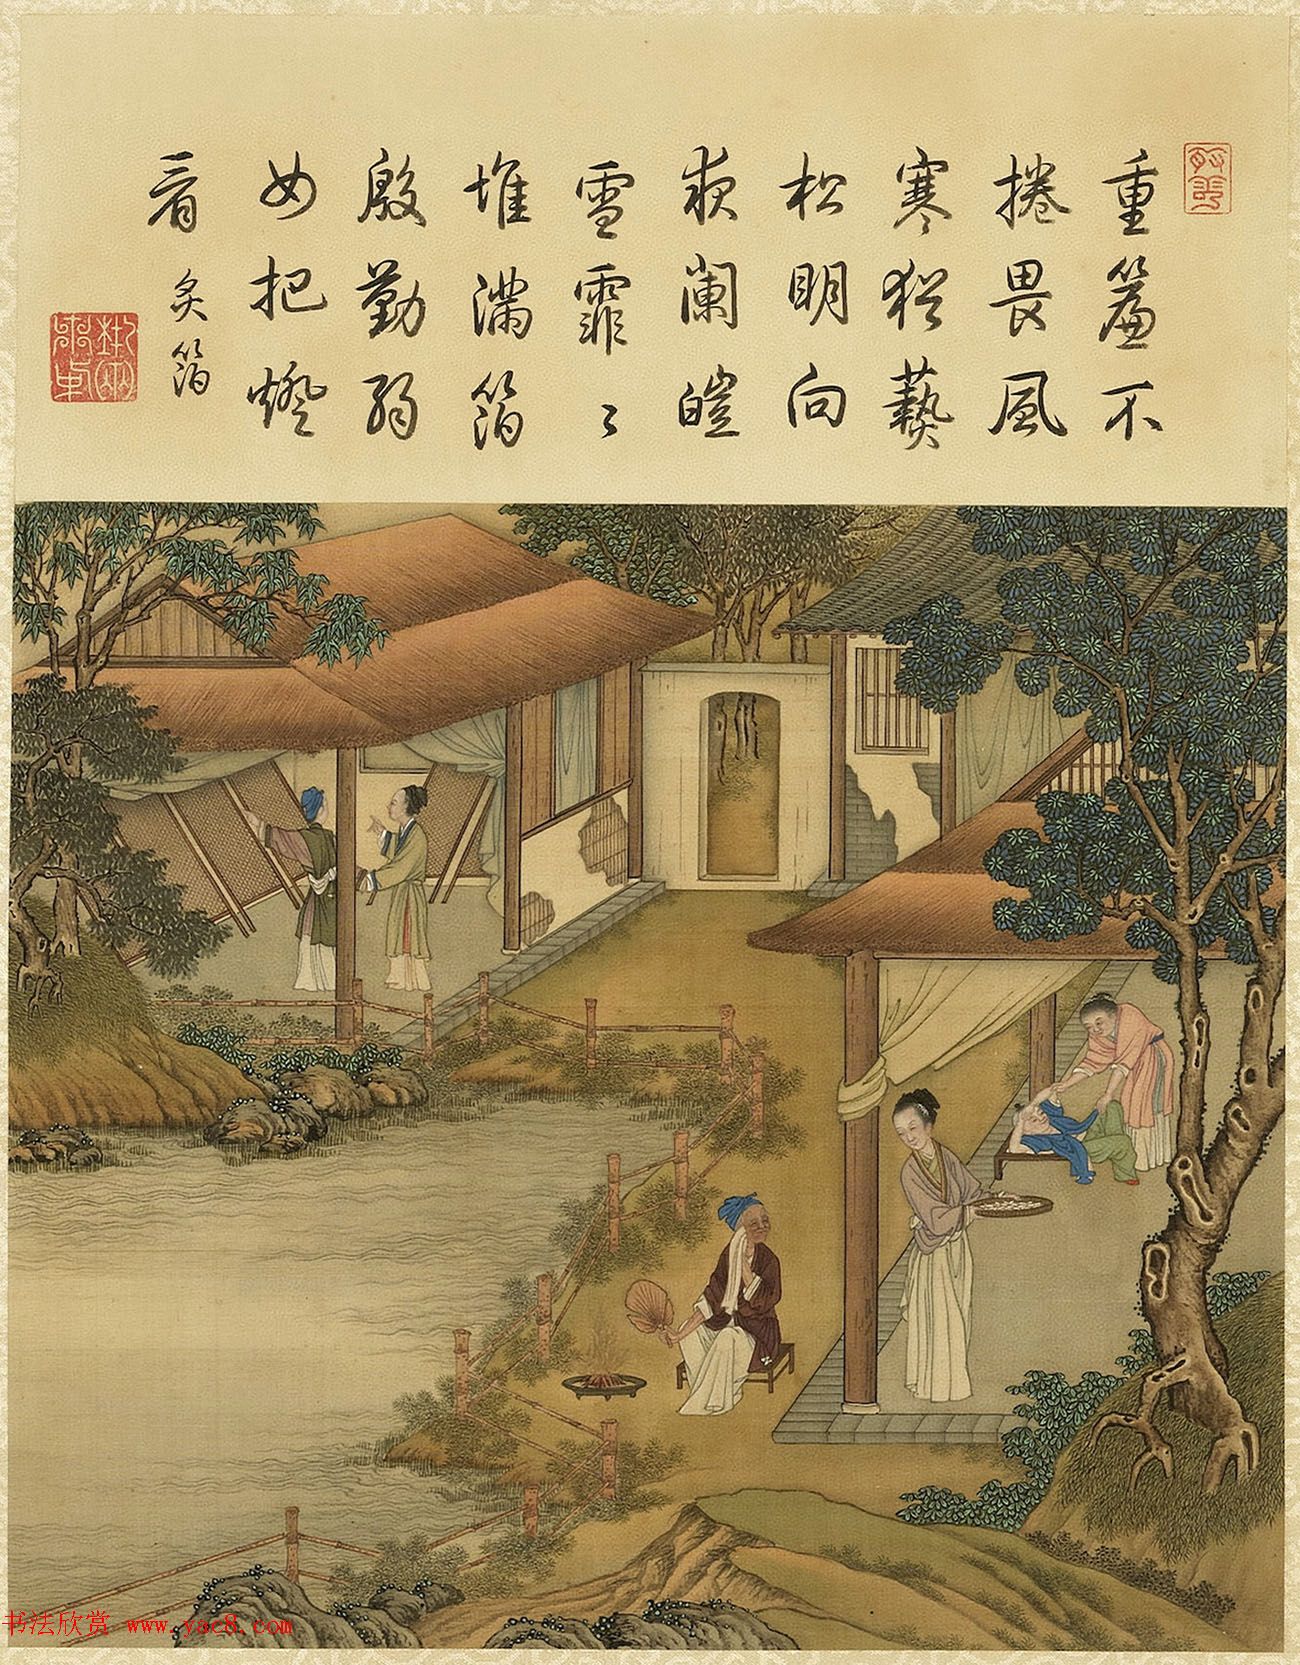 重簾不
捲畏風
寒猶爇
松明向
夜闌皚
雪霏〻
堆滿箔
殷勤弱
女把燈
看
炙箔
书法欣赏 www.yac8.com